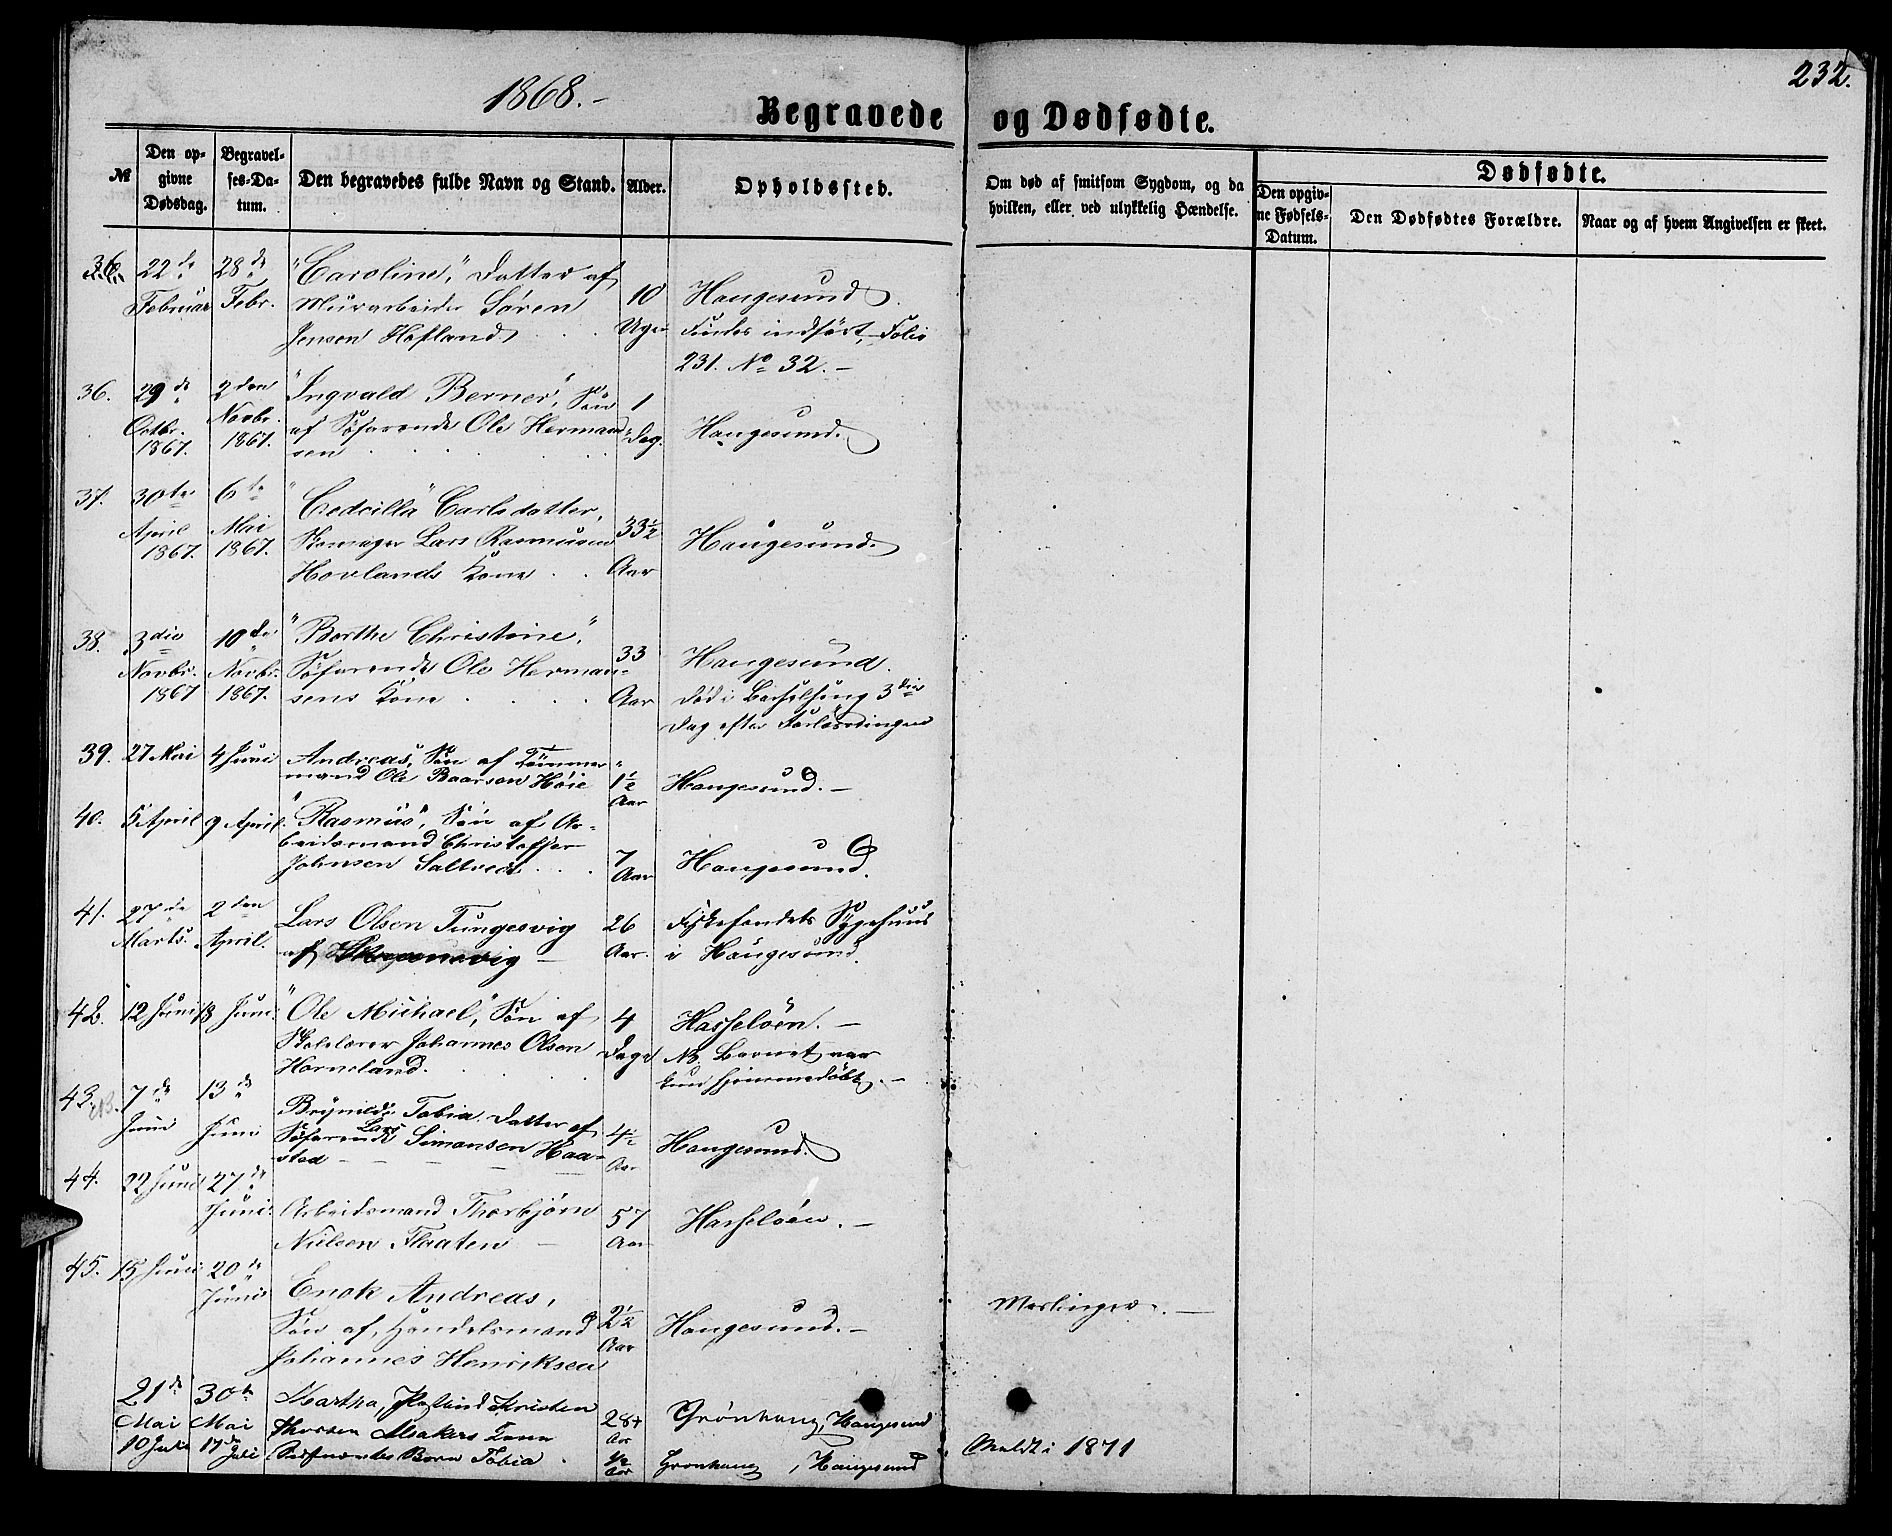 1868.-
232.
Begravede og Dødfødte.
№
Den opgivne Dødsdag.
Begravelses-Datum.
Den begravedes fulde Navn og Stand.
Alder.
Opholdssted.
Om død af smitsom Sygdom, og da hvilken, eller ved ulykkelig Hændelse.
Dødfødte.
Den opgivne Fødsels-Datum.
Den Dødfødtes Forældre.
Naar og af hvem Angivelsen er skeet.
36. 22de 28de "Caroline," Datter af
Februar Febr. Murarbeider Søren 10 Haugesund.
Jensen Hofland Uger Findes indført, Folio
231. No 32. -
36. 29de 2den "Ingvald Berner", Søn 1
Octbr. Novbr. af Søfarende Ole Herman- Dag. Haugesund.
1867. 1867. sen
37. 30te 6te "Cedcilla" Carlsdatter,
April Mai Skomager Lars Rasmusen 33½ Haugesund.
1867. 1867. Hovlands Kone Aar
38. 3die 10de "Berthe Christine",
Novbr. Novbr. Søfarende Ole Herman- 33 Haugesund.
1867 1867. sens Kone Aar Död i Barselseng 3die
Dag efter Forløsningen
39. 27 Mai 4 Juni Andreas, Søn af Tømmer-
mand Ole Baarsen Høie 1½ Aar Haugesund. -
40. 5 April 9 April. "Rasmus", Søn af Ar-
beidsmand Christoffer
Johnsen Saltved 7 Aar Haugesund.
41. 27de 2den Lars Olsen Tungesvig 26 Fiskefondets Sygehuus
Marts. April. af Aar. i Haugesund.
42. 12 Juni 18 Juni. "Ole Michael," Søn af 4 Hasseløen. -
Skolelærer Johannes Olsen Dage NB. Barnet var
Horneland. kun hjemmedøbt. -
43. 7de 13de Brynilde Tobia. Datter af
Juni Juni Søfarende Lars Simonsen Haa- 4½ Haugesund.
sted Aar
44. 22 Juni 27de
Juni. Arbeidsmand Thorbjørn 57 Hasseløen. -
Nielsen Flaaten - Aar
45. 15 Juni 20de
Junii Enok Andreas,
Søn af Handelsmand 2½ Haugesund. - Meslinger. -
Johannes Henriksen Aar
21de 30te Martha, Kristen
Mai Mai Thorsen Kone 28 Aar Grönhaug, Haugesund
10 Juli 17de Juli Børn Tobia ½ Aar Gronhaug, Haugesund Meldt i 1871